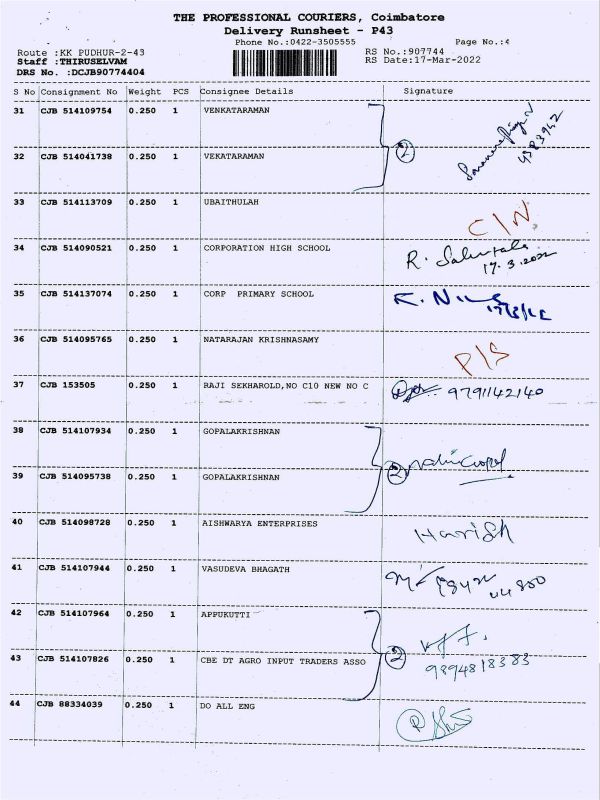 THE PROFESSIONAL COURIERS, Coimbatore
Delivery Runsheet - P43
Phone No.:0422-3505555 Page No.:4
Route :KK PUDHUR-2-43 RS No.:907744
Staff :THIRUSELVAM RS Date:17-Mar-2022
DRS No. :DCJB90774404
S No Consignment No Weight PCS Consignee Details Signature
31 CJB 514109754 0.250 1 VENKATARAMAN
32 CJB 514041738 0.250 1 VEKATARAMAN 2
33 CJB 514113709 0.250 1 UBAITHULAH C/N
34 CJB 514090521 0.250 1 CORPORATION HIGH SCHOOL R.
17.3.2022
35 CJB 514137074 0.250 1 CORP PRIMARY SCHOOL
36 CJB 514095765 0.250 1 NATARAJAN KRISHNASAMY P/S
37 CJB 153505 0.250 1 RAJI SEKHAROLD,NO C10 NEW NO C 9791142140
38 CJB 514107934 0.250 1 GOPALAKRISHNAN
39 CJB 514095738 0.250 1 GOPALAKRISHNAN 2
40 CJB 514098728 0.250 1 AISHWARYA ENTERPRISES Harish
41 CJB 514107944 0.250 1 VASUDEVA BHAGATH
42 CJB 514107964 0.250 1 APPUKUTTI
43 CJB 514107826 0.250 1 CBE DT AGRO INPUT TRADERS ASSO 2 9894818383
44 CJB 88334039 0.250 1 DO ALL ENG